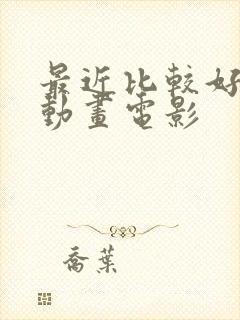 最近比較好
動畫電影
喬葉